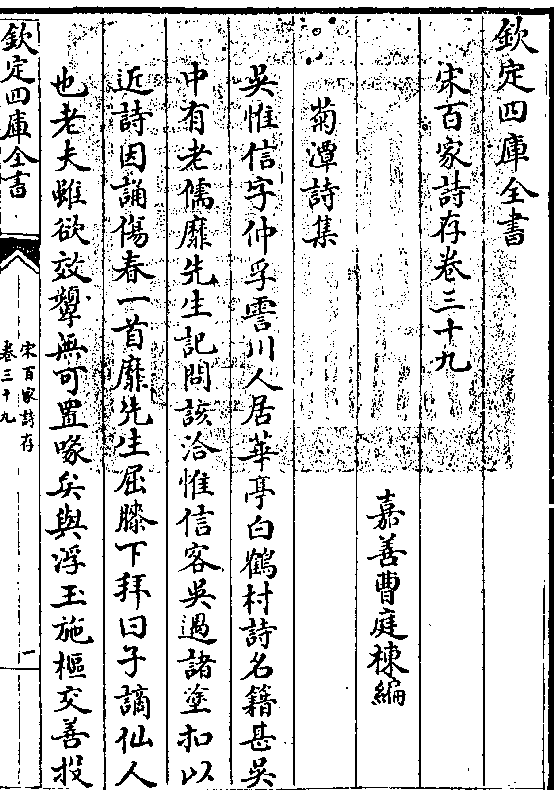 欽定四庫全書
宋百家詩存卷三十九
嘉善曹庭棟編
菊潭詩集
吳惟信字仲孚霅川人居華亭白鶴村詩名籍甚吳
中有老儒靡先生記問該洽惟信客吳過諸塗扣以
近詩因誦傷春一首靡先生屈膝下拜曰子謫仙人
也老夫雖欲效顰無可置喙矣與浮玉施樞交善投
欽定四庫全書
宋百家詩存
卷三十九
一